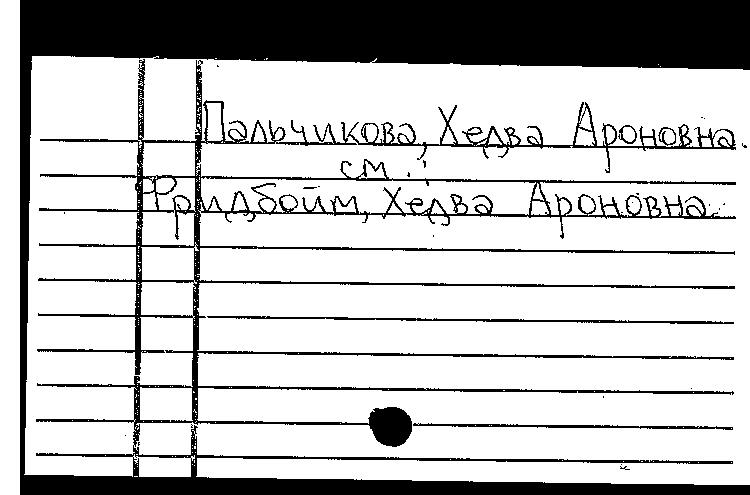 Пальчикова, Хедва Ароновна.
см.:
Фридбойм, Хедва Ароновна.